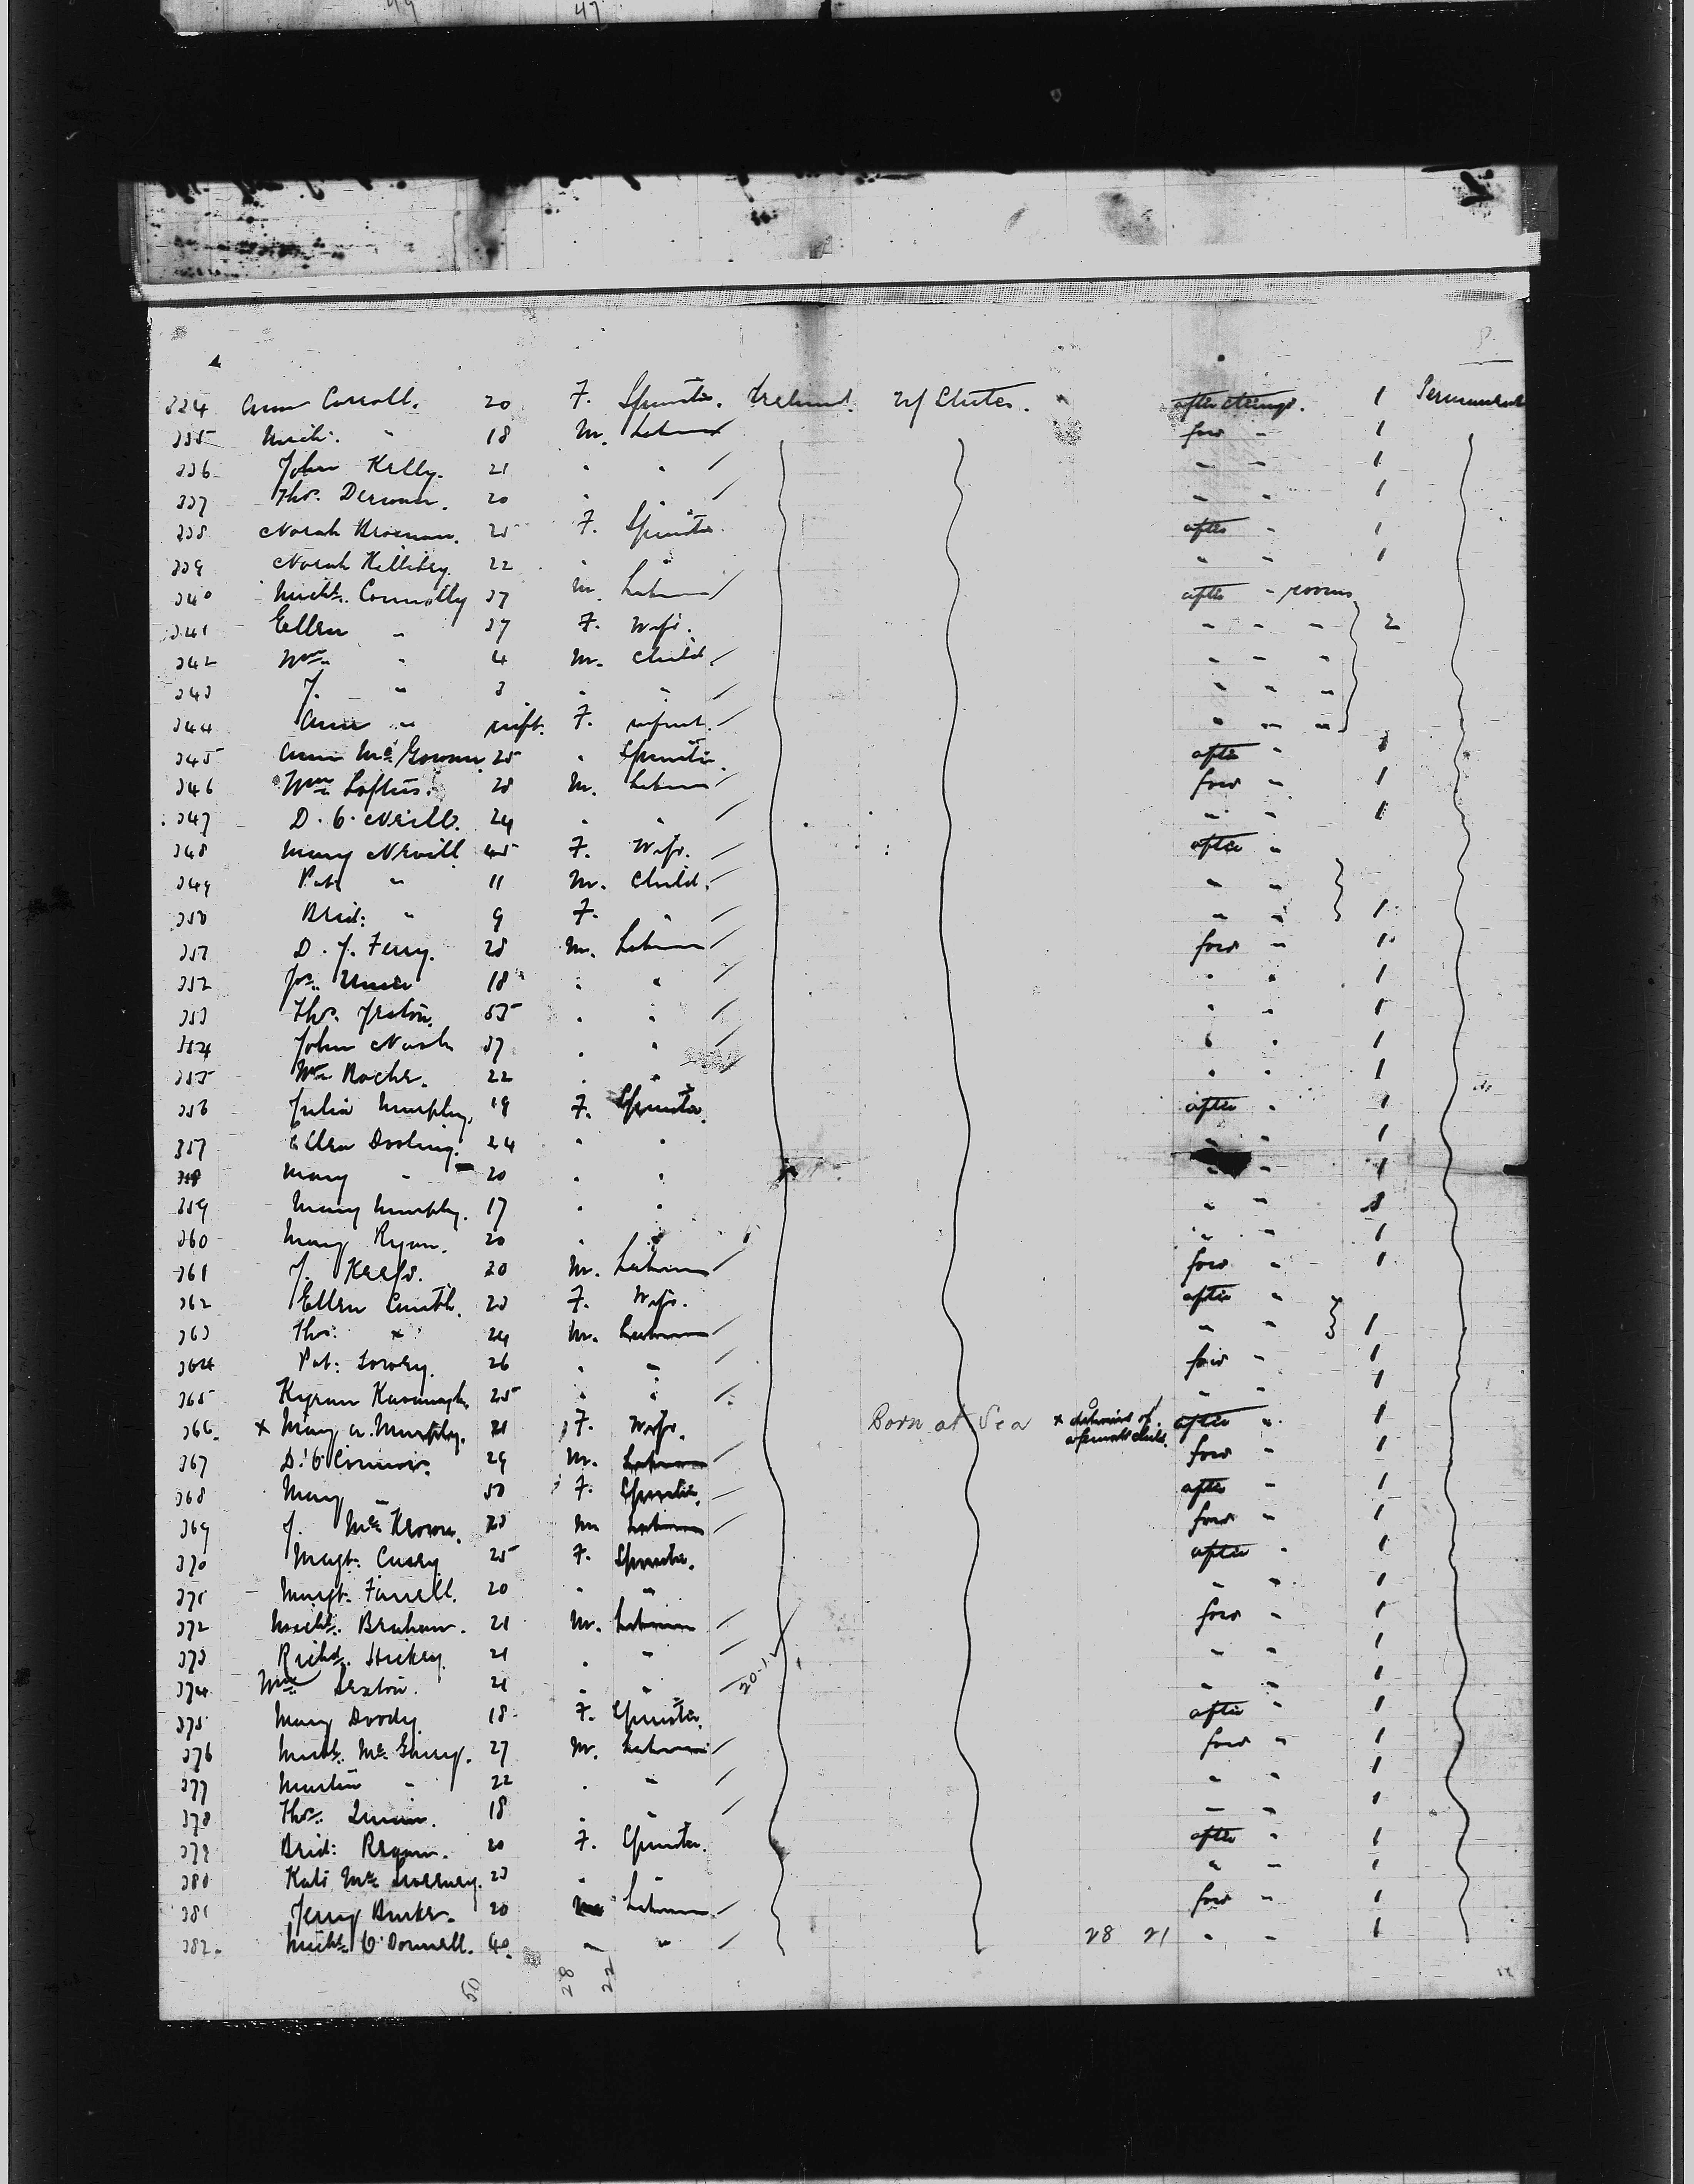 49 47
334 Ann Carroll. 20 F. Spinster. Ireland. U/States. after steerage. 1 Permanent
335 Mich: " 18 M. Laborer fow " 1
336 John Kelly. 21 " " " " 1
337 Thos. 20 " " " " 1
338 Norah Brosnan. 25 F. Spinster. after " 1
339 Norah 22 " " " " 1
340 Michl. Connolly 37 M. Laborer after " rooms
341 Ellen " 37 F. Wife. " " " 2
342 Wm. " 4 M. Child. " " "
343 J. " 3 " " " " "
344 Ann " inft. F. infant. " " "
345 Annie McGowan. 25 " Spinster. after " 1
346 Wm. Loftus. 28 M. Laborer fow " 1
347 D. O'Neill. 24 " " " " 1
348 Mary Nevill 45 F. Wife. after "
349 Pat " 11 M. Child. " "
350 Brid: " 9 F. " " " 1
351 D. J. Ferry. 28 M. Laborer fow " 1
352 Jos. 18 " " " " 1
353 Thos. 55 " " " " 1
354 John Nash 37 " " " " 1
355 Wm. Roche. 22 " " " " 1
356 Julia Murphy. 19 F. Spinster. after " 1
357 Ellen Dooling. 24 " " " " 1
358 Mary " 20 " " " " 1
359 Mary Murphy. 17 " " " " 1
360 Mary Ryan. 20 " " " " 1
361 J. Keefe. 20 M. Laborer fow " 1
362 Ellen Smith. 23 F. Wife. after "
363 Thos: " 24 M. Laborer " " 1
364 Pat: Lowey. 26 " " fow " 1
365 Kyran Kavanagh. 25 " " " " 1
366. x Mary A. Murphy. 21 F. Wife. Born at Sea x delivered of a female child. after " 1
367 D. O'Connor. 29 M. Laborer fow " 1
368 Mary " 50 F. Spinster. after " 1
369 J. McKeown. 23 M Laborer fow " 1
370 Magt. Casey 25 F. Spinster. after " 1
371 Margt. Farrell. 20 " " " " 1
372 Michl. 21 M. Laborer fow " 1
373 Richd. Hickey. 21 " " " " 1
374 Wm. Sexton. 21 " " 20-1 " " 1
375 Mary Doody. 18 F. Spinster. after " 1
376 Michl. McGarry. 27 M. Laborer fow " 1
377 Martin " 22 " " " " 1
378 Thos. Quinn. 18 " " " " 1
379 Brid: Regan. 20 F. Spinster. after " 1
380 Kate McSweeney. 23 " " " " 1
381 Jerry Burke. 20 M Laborer fow " 1
382. Michl. O'Donnell. 40. " " 28 21 " " 1
50 28 22